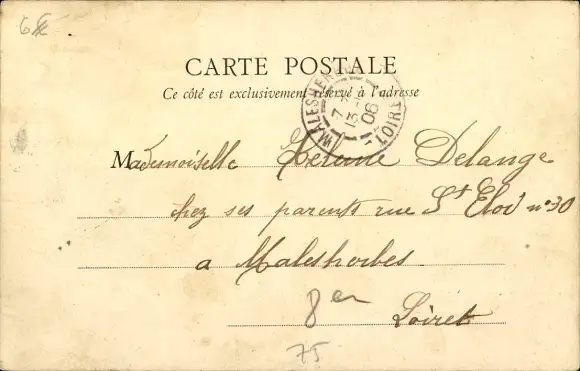 CARTE POSTALE
Ce côté est exclusivement réservé à l'adresse
MALESHERBES
LOIRET
06
Mademoiselle Helene Delange
chez ses parents rue St Eloi n° 30
a Malesherbes
8er
Loiret
75